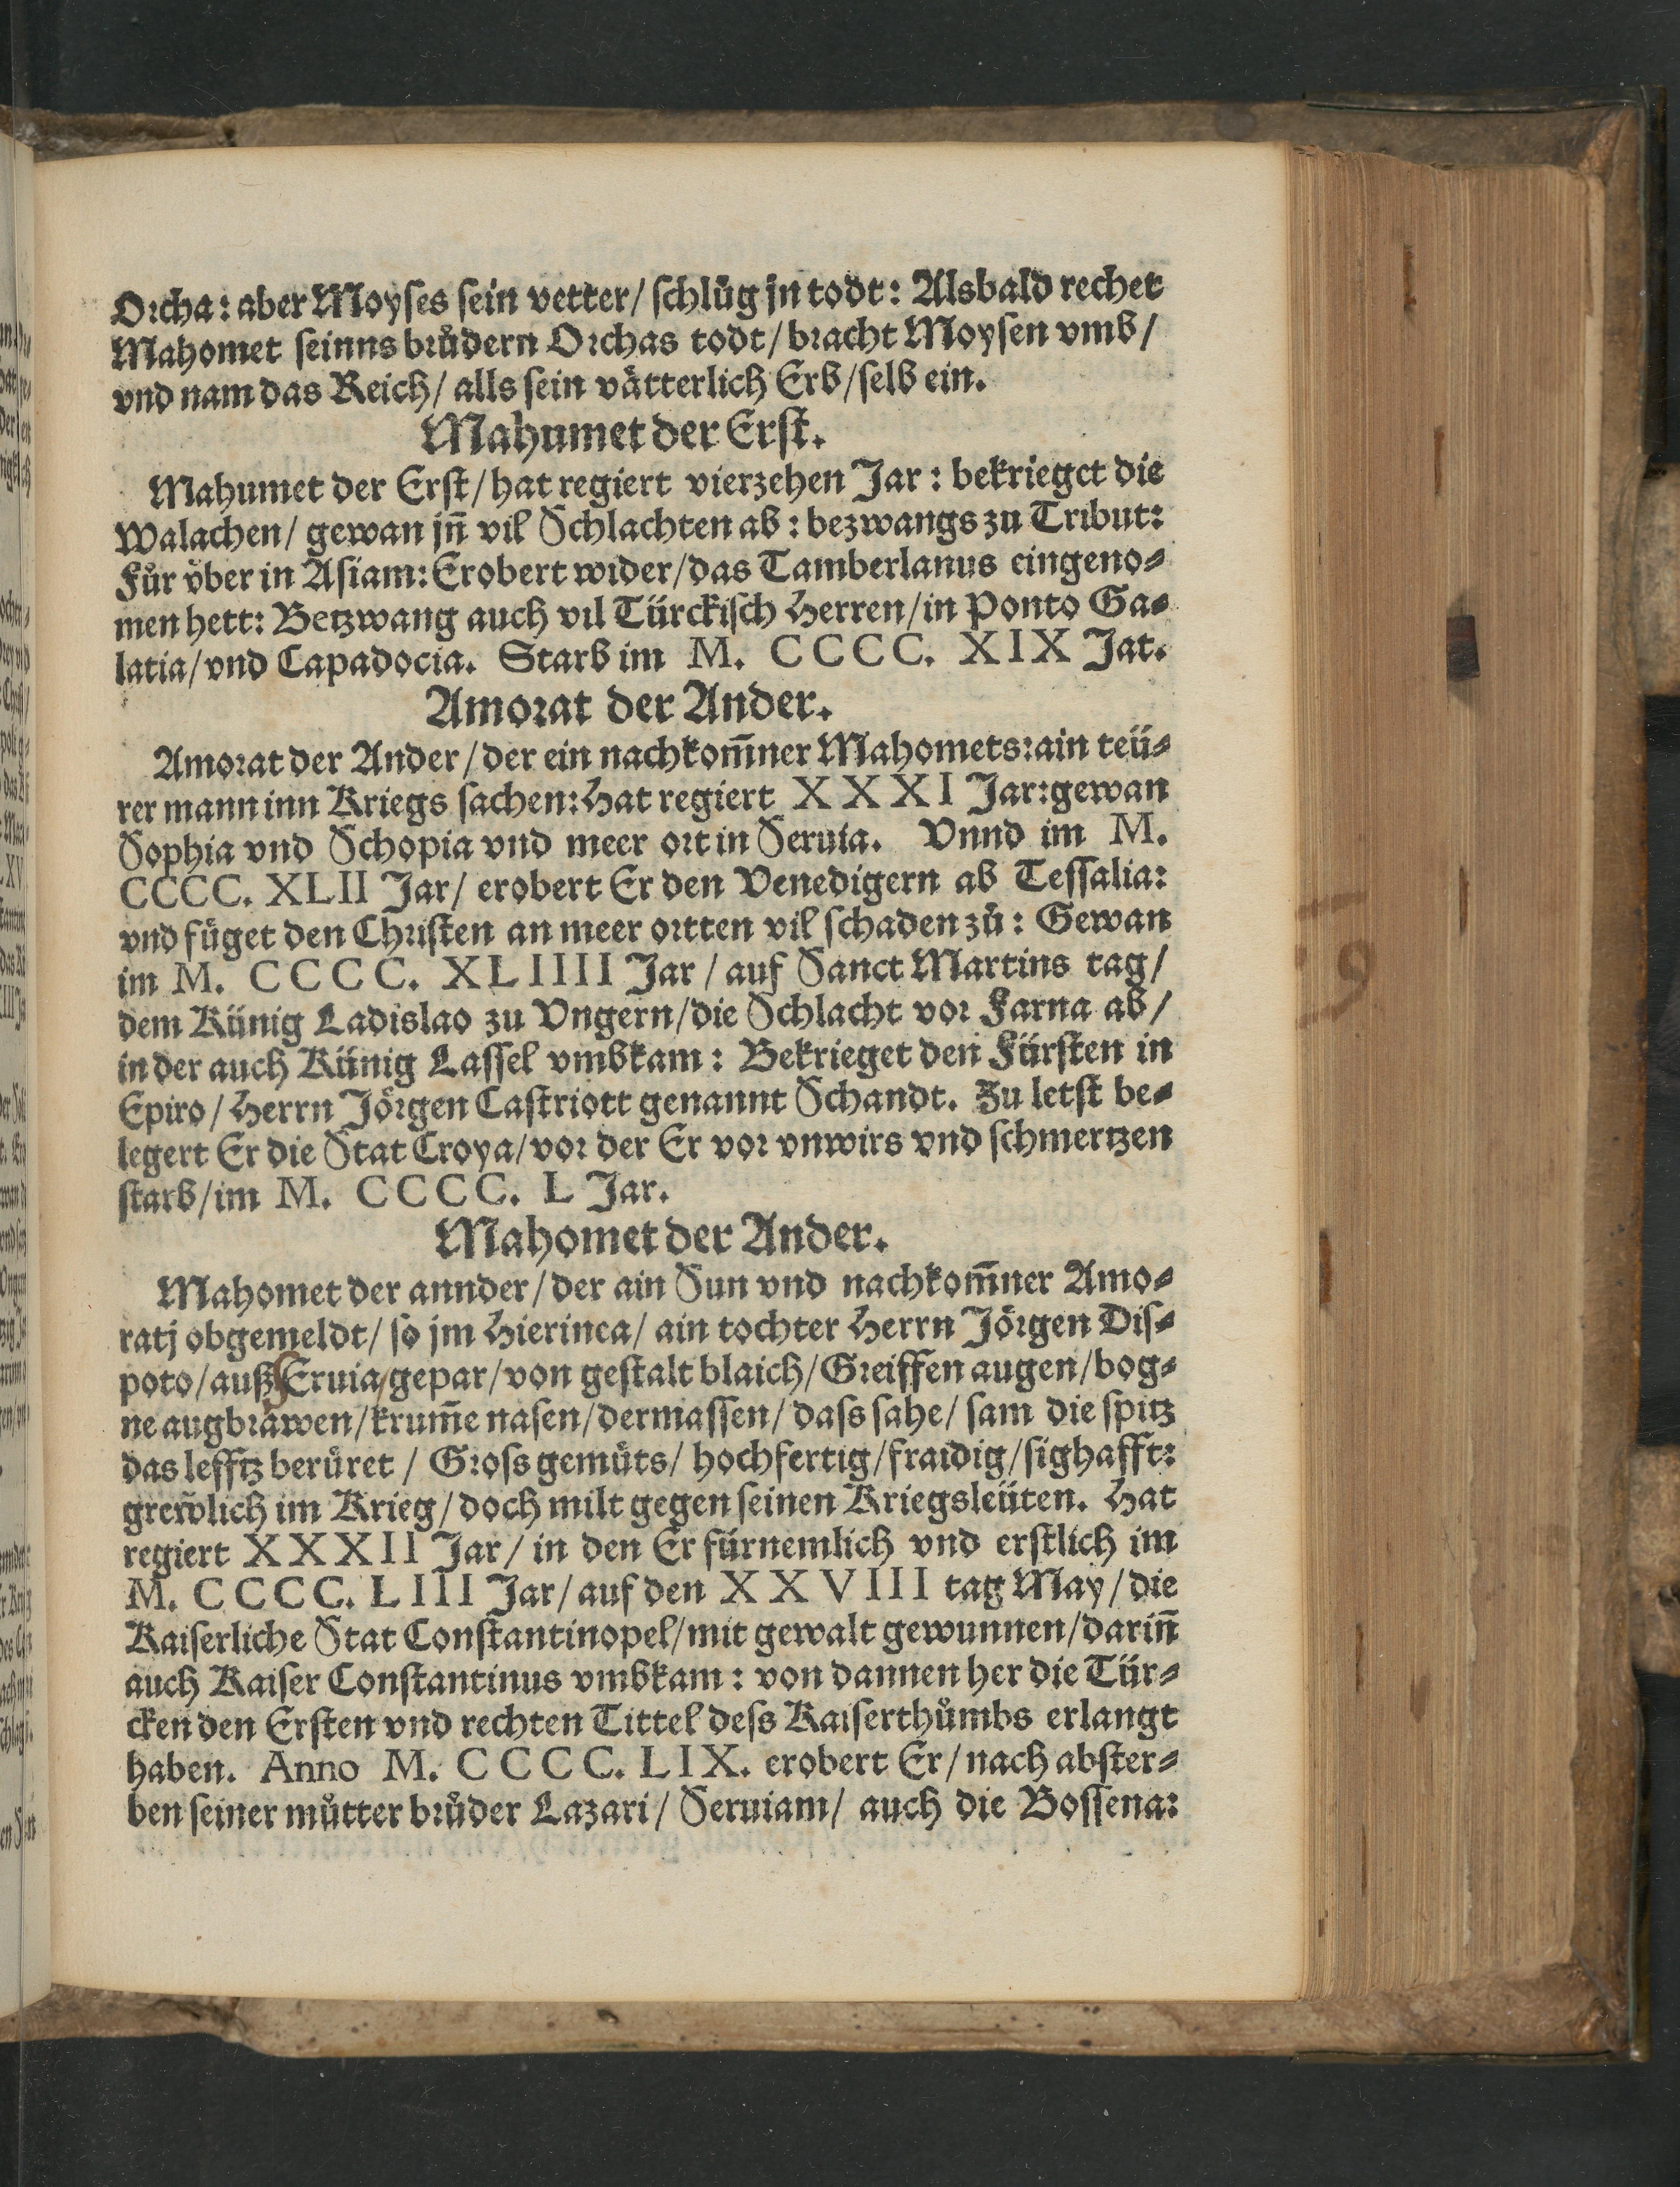 Orcha: aber Moyses sein vetter/ schlůg jn todt: Alsbald rechet
Mahomet seinns brůdern Orchas todt/ bracht Moysen vmb/
vnd nam das Reich/ alls sein vätterlich Erb/ selb ein.
Mahumet der Erst.
Mahumet der Erst/ hat regiert vierzehen Jar: bekrieget die
Walachen/ gewan jn̄ vil Schlachten ab: bezwangs zu Tribut:
Fůr vͤber in Asiam: Erobert wider/ das Tamberlanus eingeno⸗
men hett: Betzwang auch vil Türckisch Herren/ in Ponto Ga⸗
latia/ vnd Capadocia. Starb im M. CCCC. XIX Jat.
Amorat der Ander.
Amorat der Ander/ der ein nachkom̄ner Mahomets: ain teü⸗
rer mann inn Kriegs sachen: Hat regiert XXXI Jar: gewan
Sophia vnd Schopia vnd meer ort in Seruia. Vnnd im M.
CCCC. XLII Jar/ erobert Er den Venedigern ab Tessalia:
vnd füget den Christen an meer ortten vil schaden zů: Gewan
im M. CCCC. XLIIII Jar/ auf Sanct Martins tag/
dem Künig Ladislao zu Vngern/ die Schlacht vor Farna ab/
in der auch Künig Lassel vmbkam: Bekrieget den Fürsten in
Epiro/ Herrn Jörgen Castriott genannt Schandt. Zu letst be⸗
legert Er die Stat Croya/ vor der Er vor vnwirs vnd schmertzen
starb/ im M. CCCC. L Jar.
Mahomet der Ander.
Mahomet der annder/ der ain Sun vnd nachkom̄ner Amo⸗
ratj obgemeldt/ so jm Hierinca/ ain tochter Herrn Jörgen Dis⸗
poto/ auß SEruia/ gepar/ von gestalt blaich/ Greiffen augen/ bog⸗
ne augbräwen/ krum̄e nasen/ dermassen/ dass sahe/ sam die spitz
das lefftz berüret/ Gross gemüts/ hochfertig/ fraidig/ sighafft:
grew̎lich im Krieg/ doch milt gegen seinen Kriegsleüten. Hat
regiert XXXII Jar/ in den Er fürnemlich vnd erstlich im
M. CCCC. LIII Jar/ auf den XXVIII tag May/ die
Kaiserliche Stat Constantinopel/ mit gewalt gewunnen/ darin̄
auch Kaiser Constantinus vmbkam: von dannen her die Tür⸗
cken den Ersten vnd rechten Tittel dess Kaiserthůmbs erlangt
haben. Anno M. CCCC. LIX. erobert Er/ nach abster⸗
ben seiner můtter brůder Lazari/ Seruiam/ auch die Bossena: